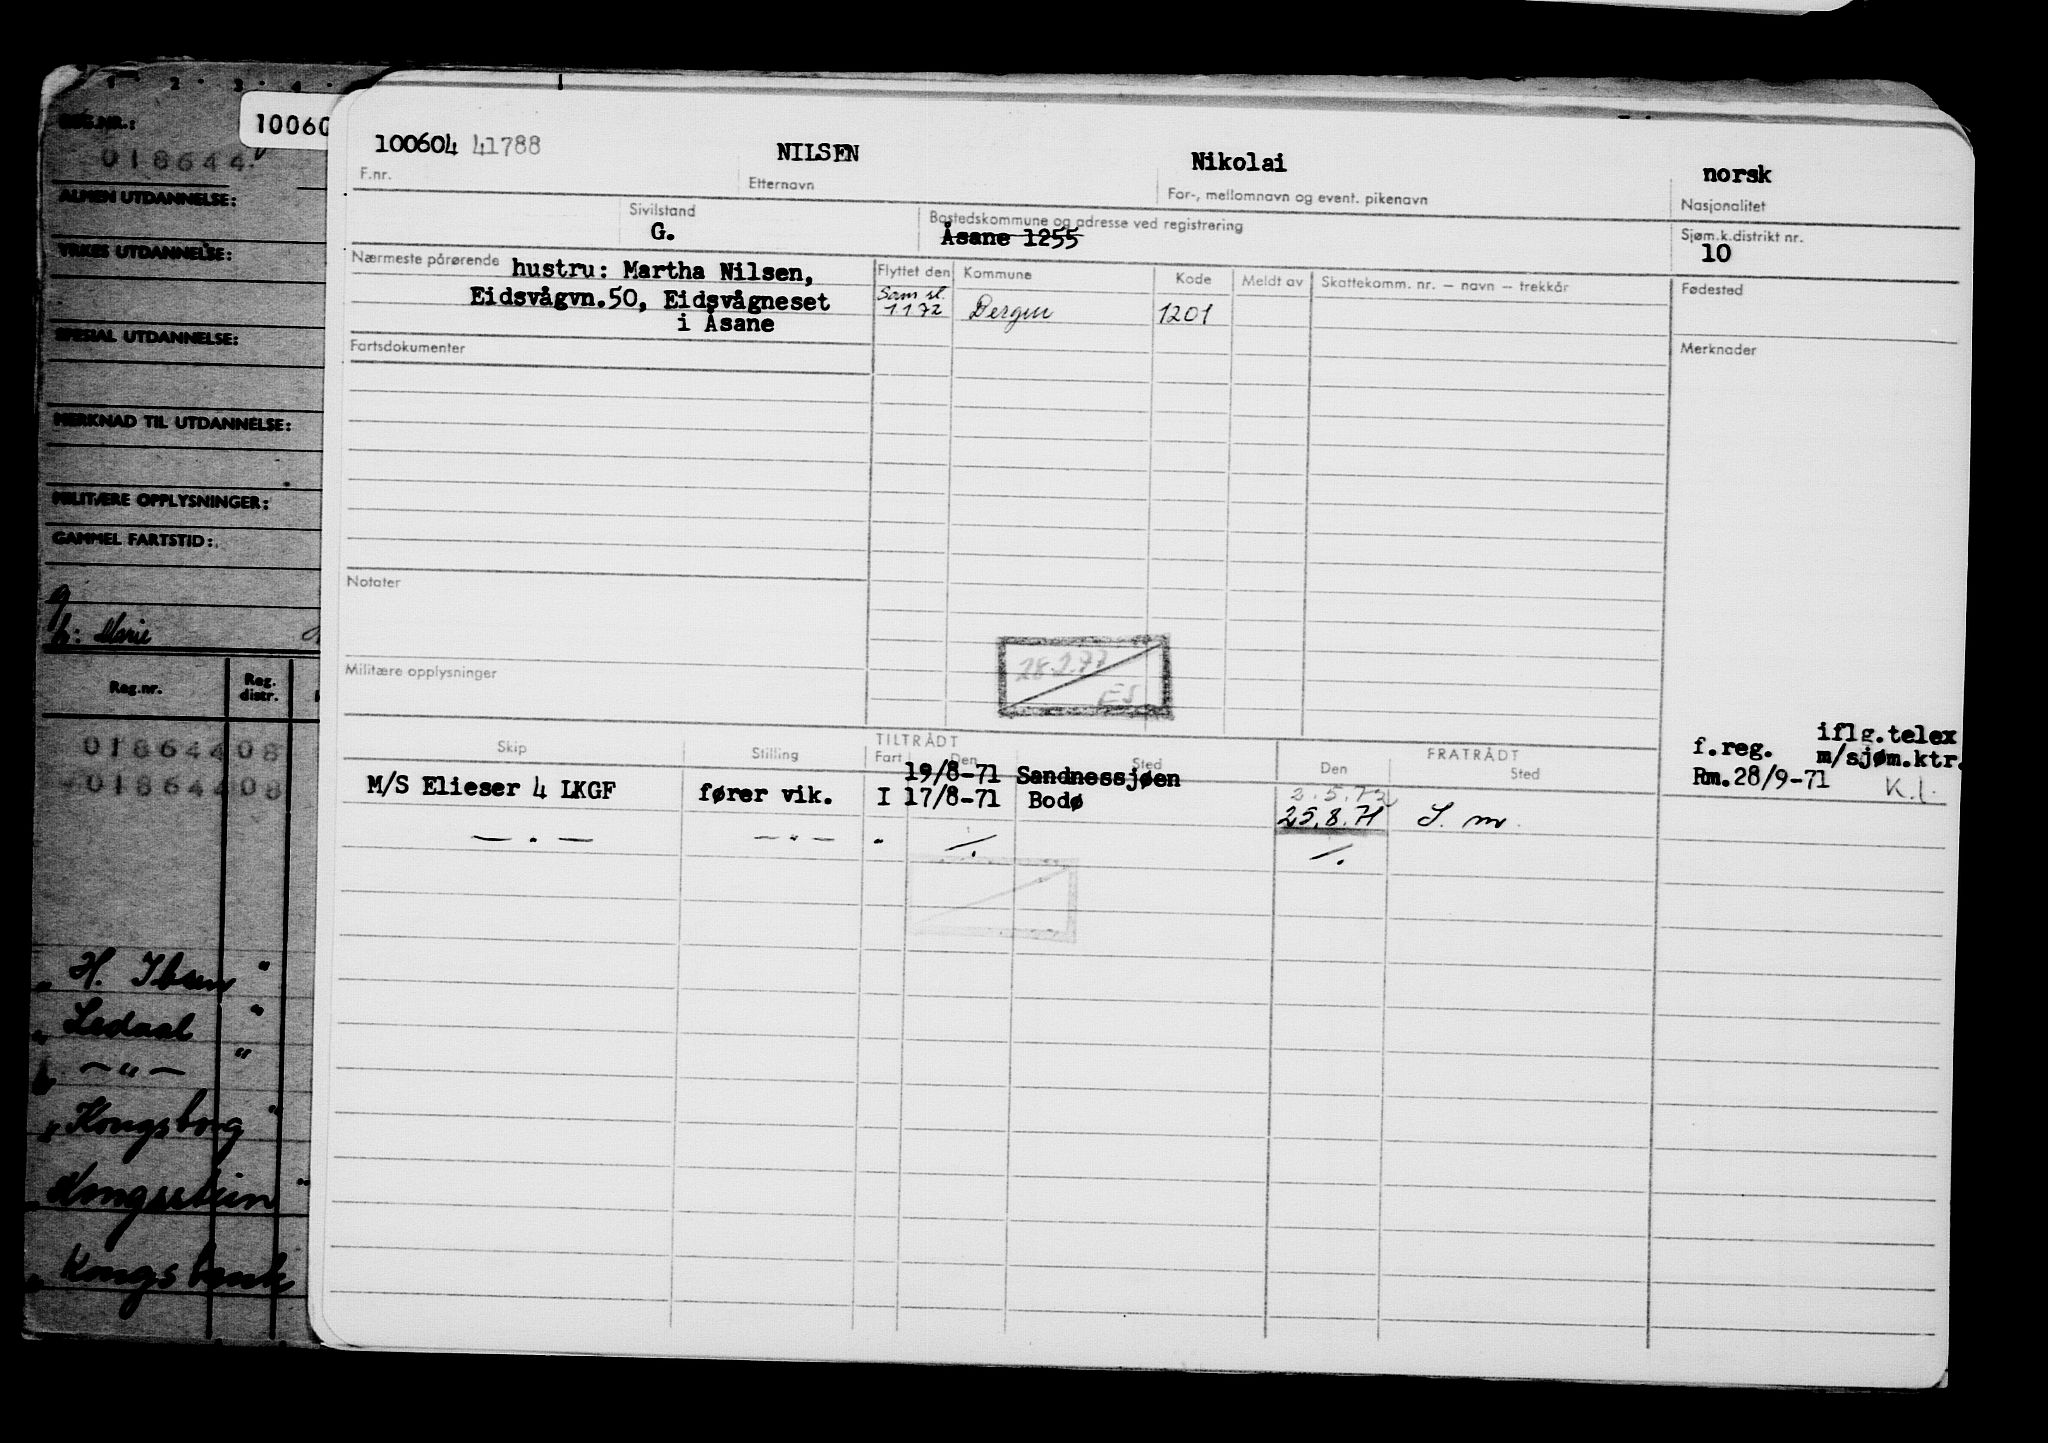 REG.NR.:
018644
ALMEN UTDANNELSE:
YRKES UTDANNELSE:
SPESIAL UTDANNELSE:
MERKNAD TIL UTDANNELSE:
MILITÆRE OPPLYSNINGER:
GAMMEL FARTSTID:
g
h: Marie
Reg.nr. Reg. distr.
01864408
01864408
" H. Ibsen "
" Ledaal "
— " — "
Kongsborg "
Kongsstein "
10060
100604 41788 NILSEN Nikolai norsk
F.nr. Etternavn For-, mellomnavn og event. pikenavn Nasjonalitet
Sivilstand Bostedskommune og adresse ved registrering Sjøm.k.distrikt nr.
G. Åsane 1255 10
Nærmeste pårørende hustru: Martha Nilsen, Flyttet den Kommune Kode Meldt av Skattekomm. nr. — navn — trekkår Fødested
Eidsvågvn.50, Eidsvågneset Sam sl. 1 1 72 Bergen 1201
i Åsane
Fartsdokumenter Merknader
Notater
28.2.77
ES
Militære opplysninger
TILTRÅDT FRATRÅDT
Skip Stilling Fart Den Sted Den Sted
f.reg. iflg.telex
m/sjøm.ktr.
19/8-71 Sandnessjøen Rm.28/9-71 K.l.
M/S Elieser 4 LKGF fører vik. I 17/8-71 Bodø 2.5.72
25.8.71 S. m.
— . — — " — " /. /.